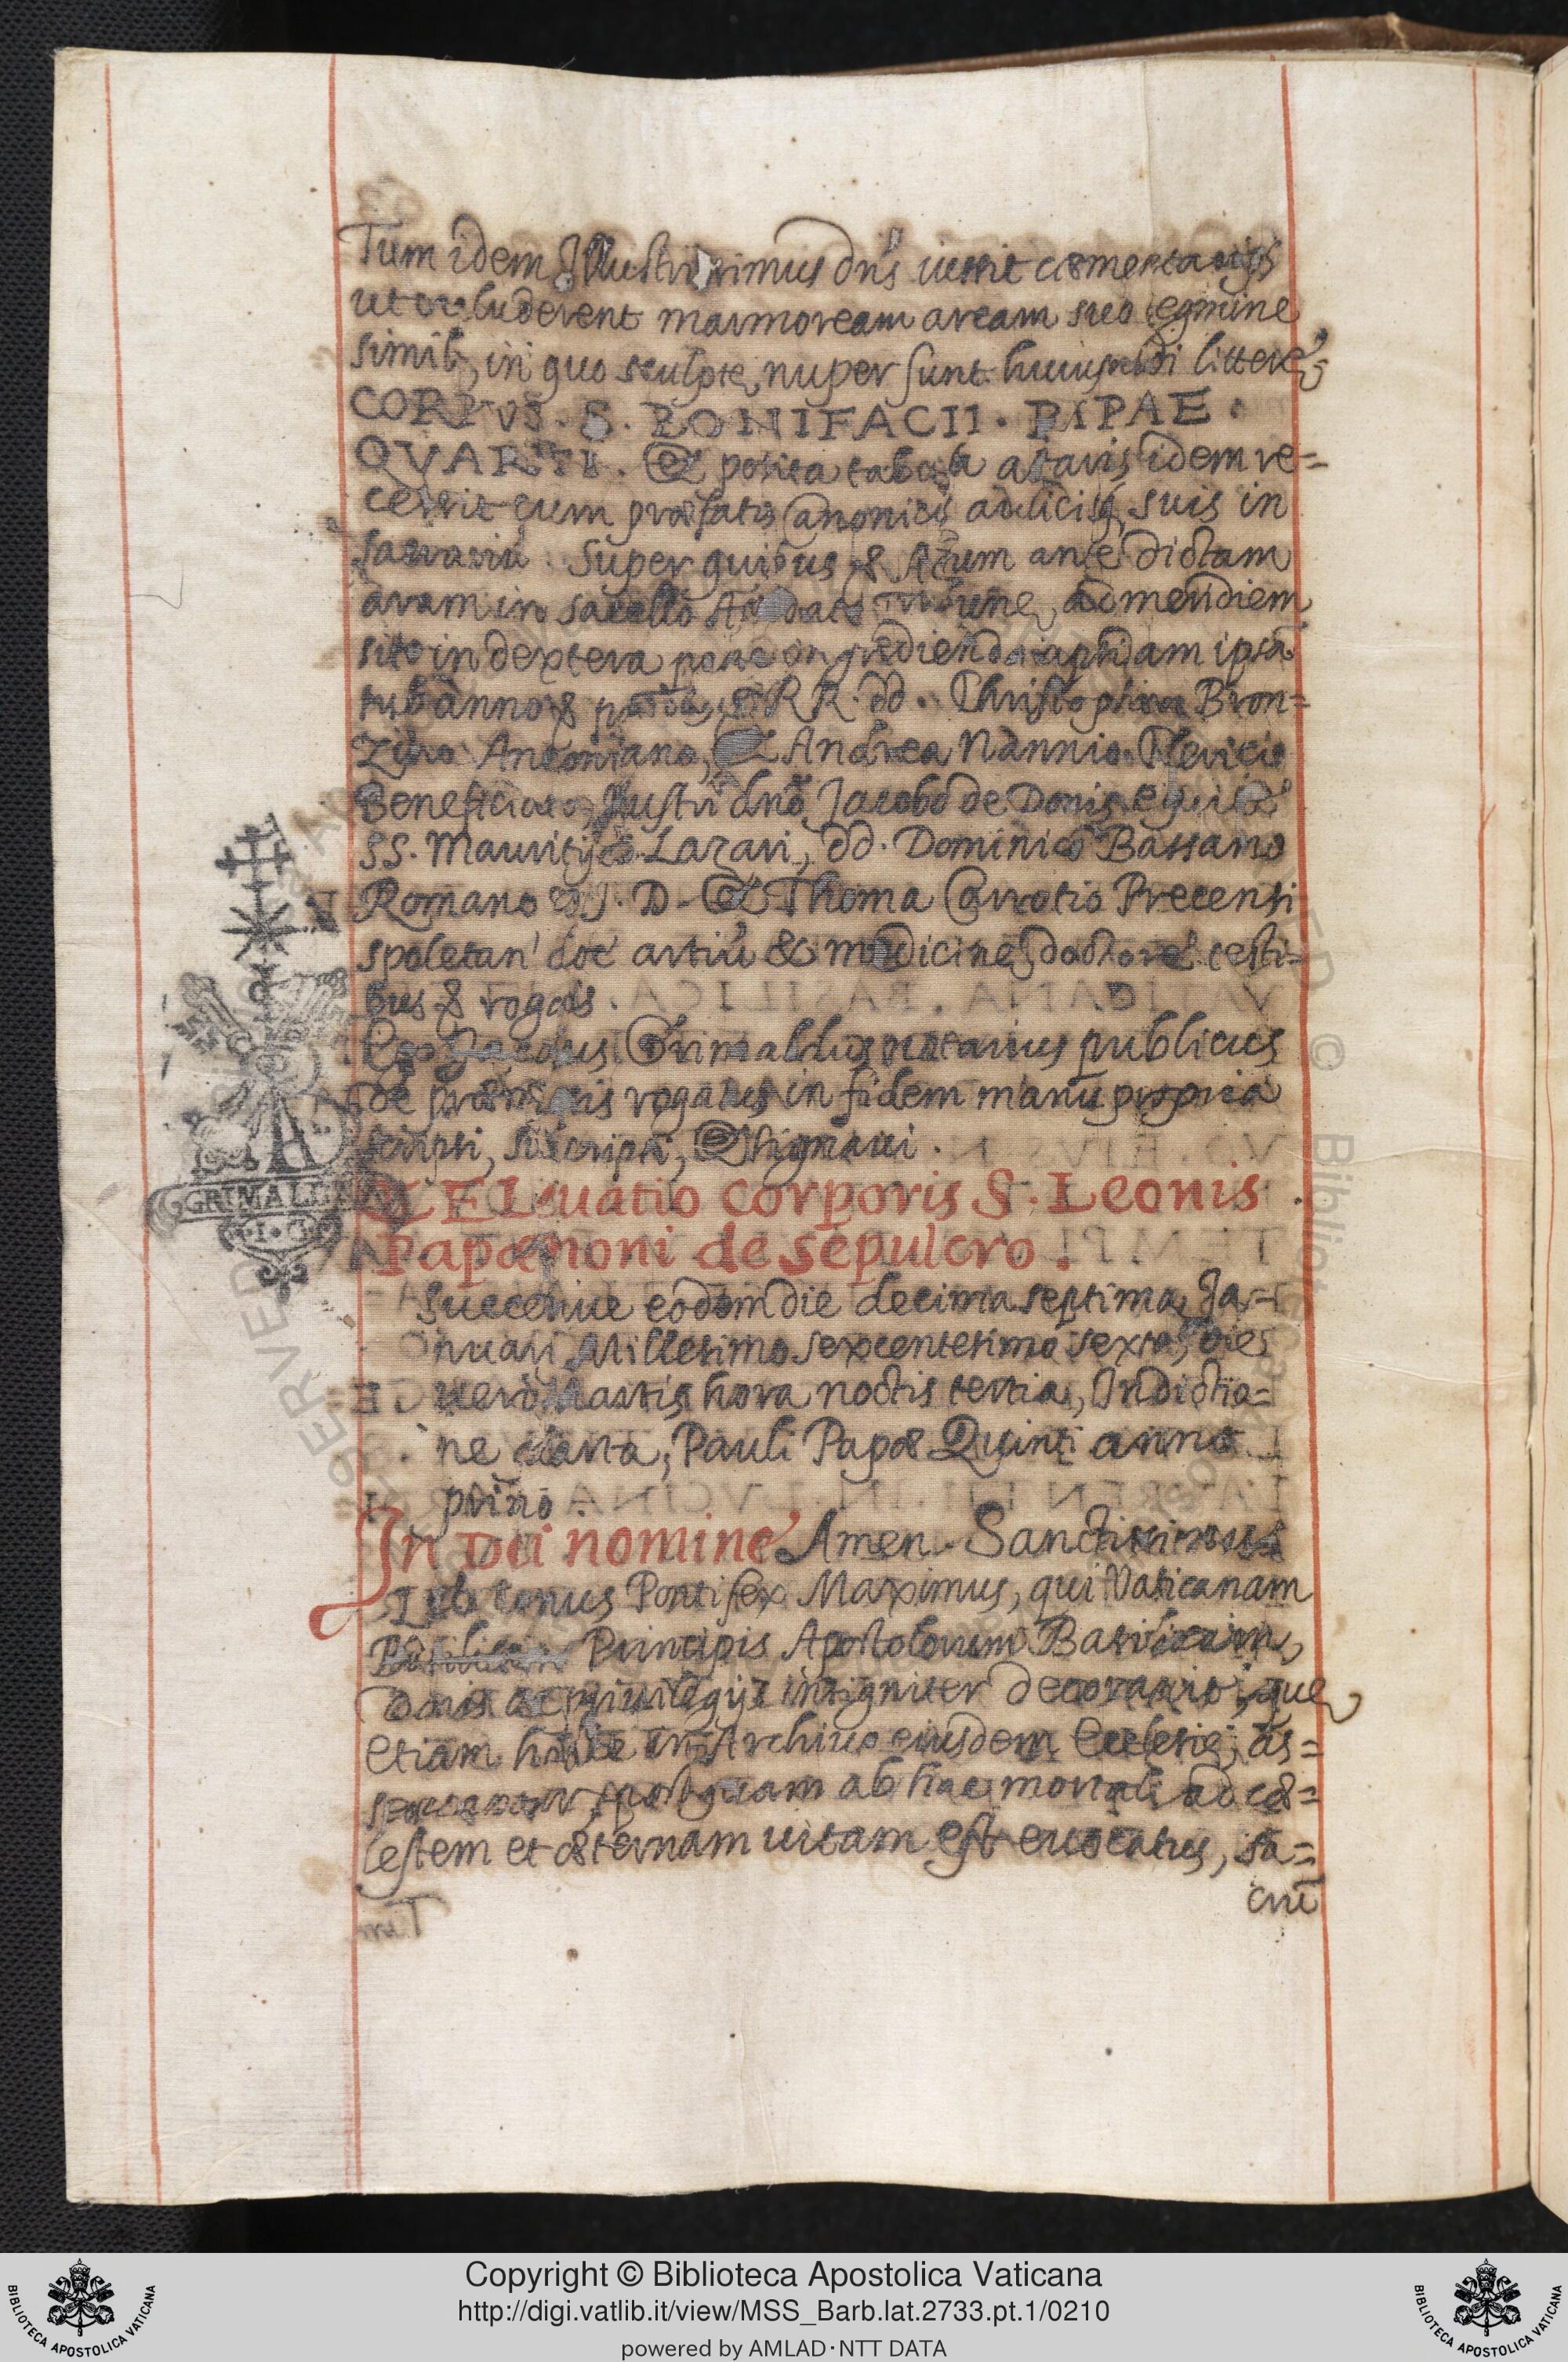 Tum idem Illustrissimus dn̄s iussit cæmentarijs
ut occluderent marmoream arcam suo tegmine
simili, in quo sculptę nuper sunt huiusmodi litterę
CORPVS. S. BONIFACII. PAPAE.
QVARTI. Et posita tabula altaris idem re=
cessit cum præfatis Canonicis aulicisq; suis in
sacrariũ. Super quibus &. Actum ante dictam
aram in sacello Tribunę, ad meridiem
sito in dextera parte ingrediendo apsidam ipsã
sub anno & RR. dd. Christophoro Bron=
zino Anconitano, Et Andrea Nannio Clericis
Beneficiatis, Illustri dnō Jacobo de Donis equite
SS. Mauritij & Lazari, dd. Dominico Bassano
Romano J. D. Et Thoma Carratio Precensi
spoletan' doc' artiũ & medicinę doctore testi=
bus & rogatis.
Ego Jacobus Grimaldus notarius publicus
de præmissis rogatus in fidem manu propria
scripsi, subscripsi, Et signaui.
GRIMALD
.I.G.
Eleuatio corporis S. Leonis
Papæ noni de sepulcro.
Successiue eodem die decima septima Ja=
nuarij Millesimo sexcentesimo sexto, die
uerò Martis hora noctis tertia, Indictio=
ne quarta, Pauli Papæ Quinti anno
primo
In Dei nomine Amen. Sanctissimus
Leo nonus Pontifex Maximus, qui Vaticanam
Principis Apostolorum Basilicam
donis ac priuilegijs insigniter decorauit, quę
etiam hodie in Archiuo eiusdem Ecclesię as=
seruantur, postquam ab hac mortali ad cæ=
lestem et æternam uitam est euocatus, sa=
crũ
Copyright © Biblioteca Apostolica Vaticana
http://digi.vatlib.it/view/MSS_Barb.lat.2733.pt.1/0210
powered by AMLAD·NTT DATA
BIBLIOTECA APOSTOLICA VATICANA
BIBLIOTECA APOSTOLICA VATICANA